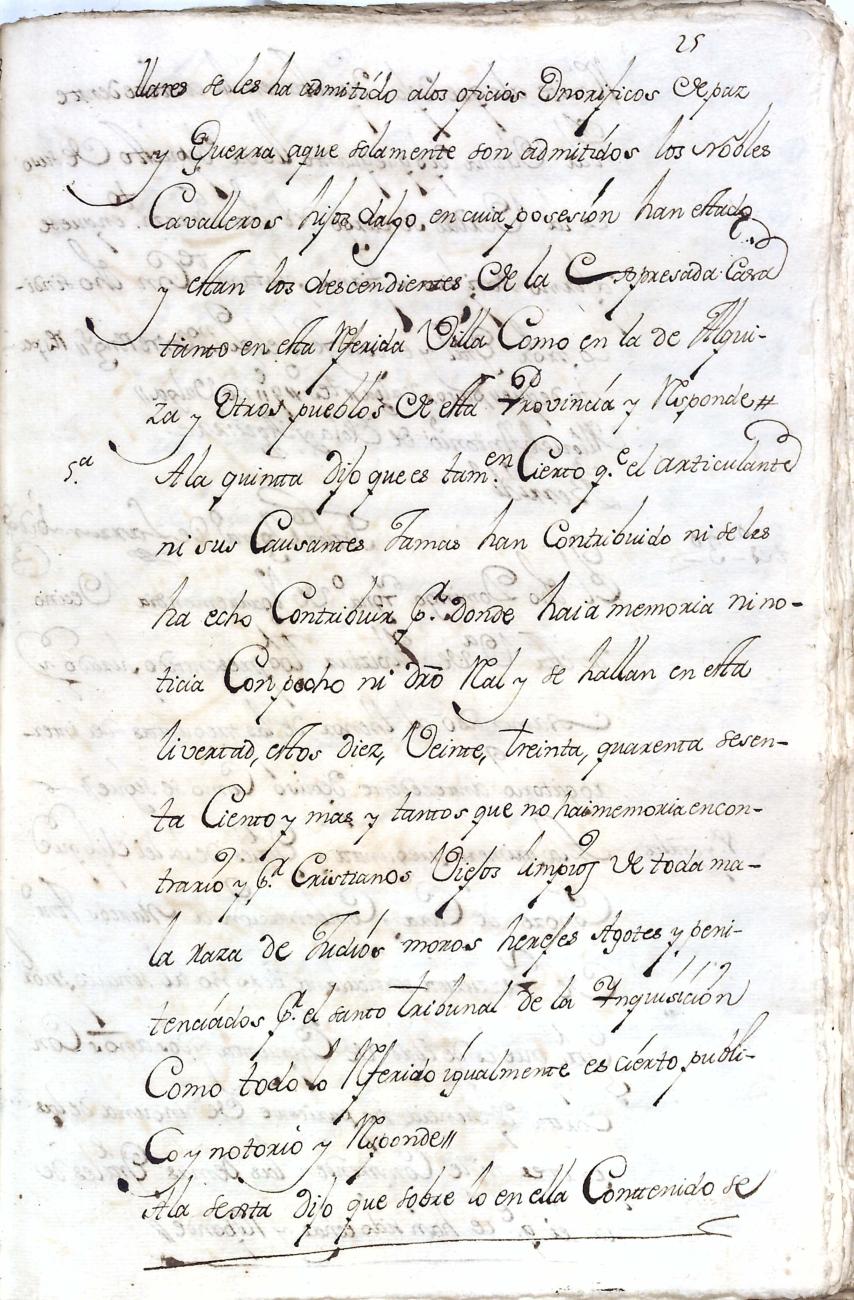 25
llares se les ha admitido a los oficios Onorificos de paz
y Guerra aque solamente son admitidos los Nobles
Cavalleros hijos dalgo, en cuia posesion han estado
y estan los descendientes de la Expresada Casa
tanto en esta Referida Villa Como en la de Alqui-
za y Otros pueblos de esta Prov.d Provincia y Responde #
5.a A la quinta dijo que es tam.en Cierto q.e el articulante
ni sus Causantes Jamas han Contribuido ni se les
ha echo Contribuir p.r Donde haia memoria ni no-
ticia Con pecho ni dro Real y se hallan en esta
livertad, estos diez, Veinte, treinta, quarenta sesen-
ta Ciento y mas y tantos que no hai memoria en con-
trario y p.r Cristianos Viejos limpios de toda ma-
la Raza de Judios moros herejes Agotes y peni-
tenciados p.r el santo tribunal de la Ynquisicion
Como todo lo Referido igualmente es cierto publi-
Co y notorio y Responde//
A la sesta dijo que sobre lo en ella Contenido se